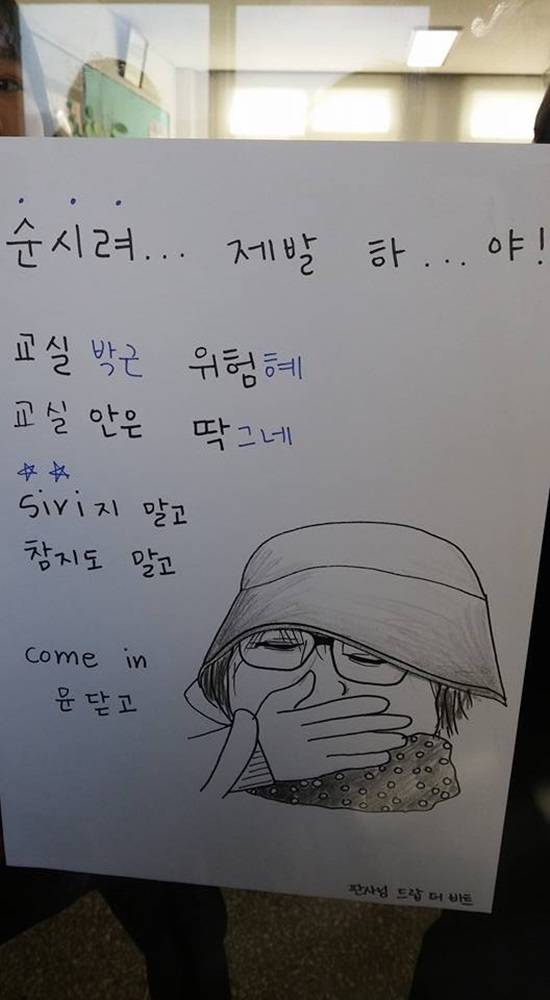 순시려... 제발 하... 야!
교실 박근 위험혜
교실 안은 딱그네
siri지 말고
참지도 말고
come in
문 닫고
판사님 드랍 더 비트